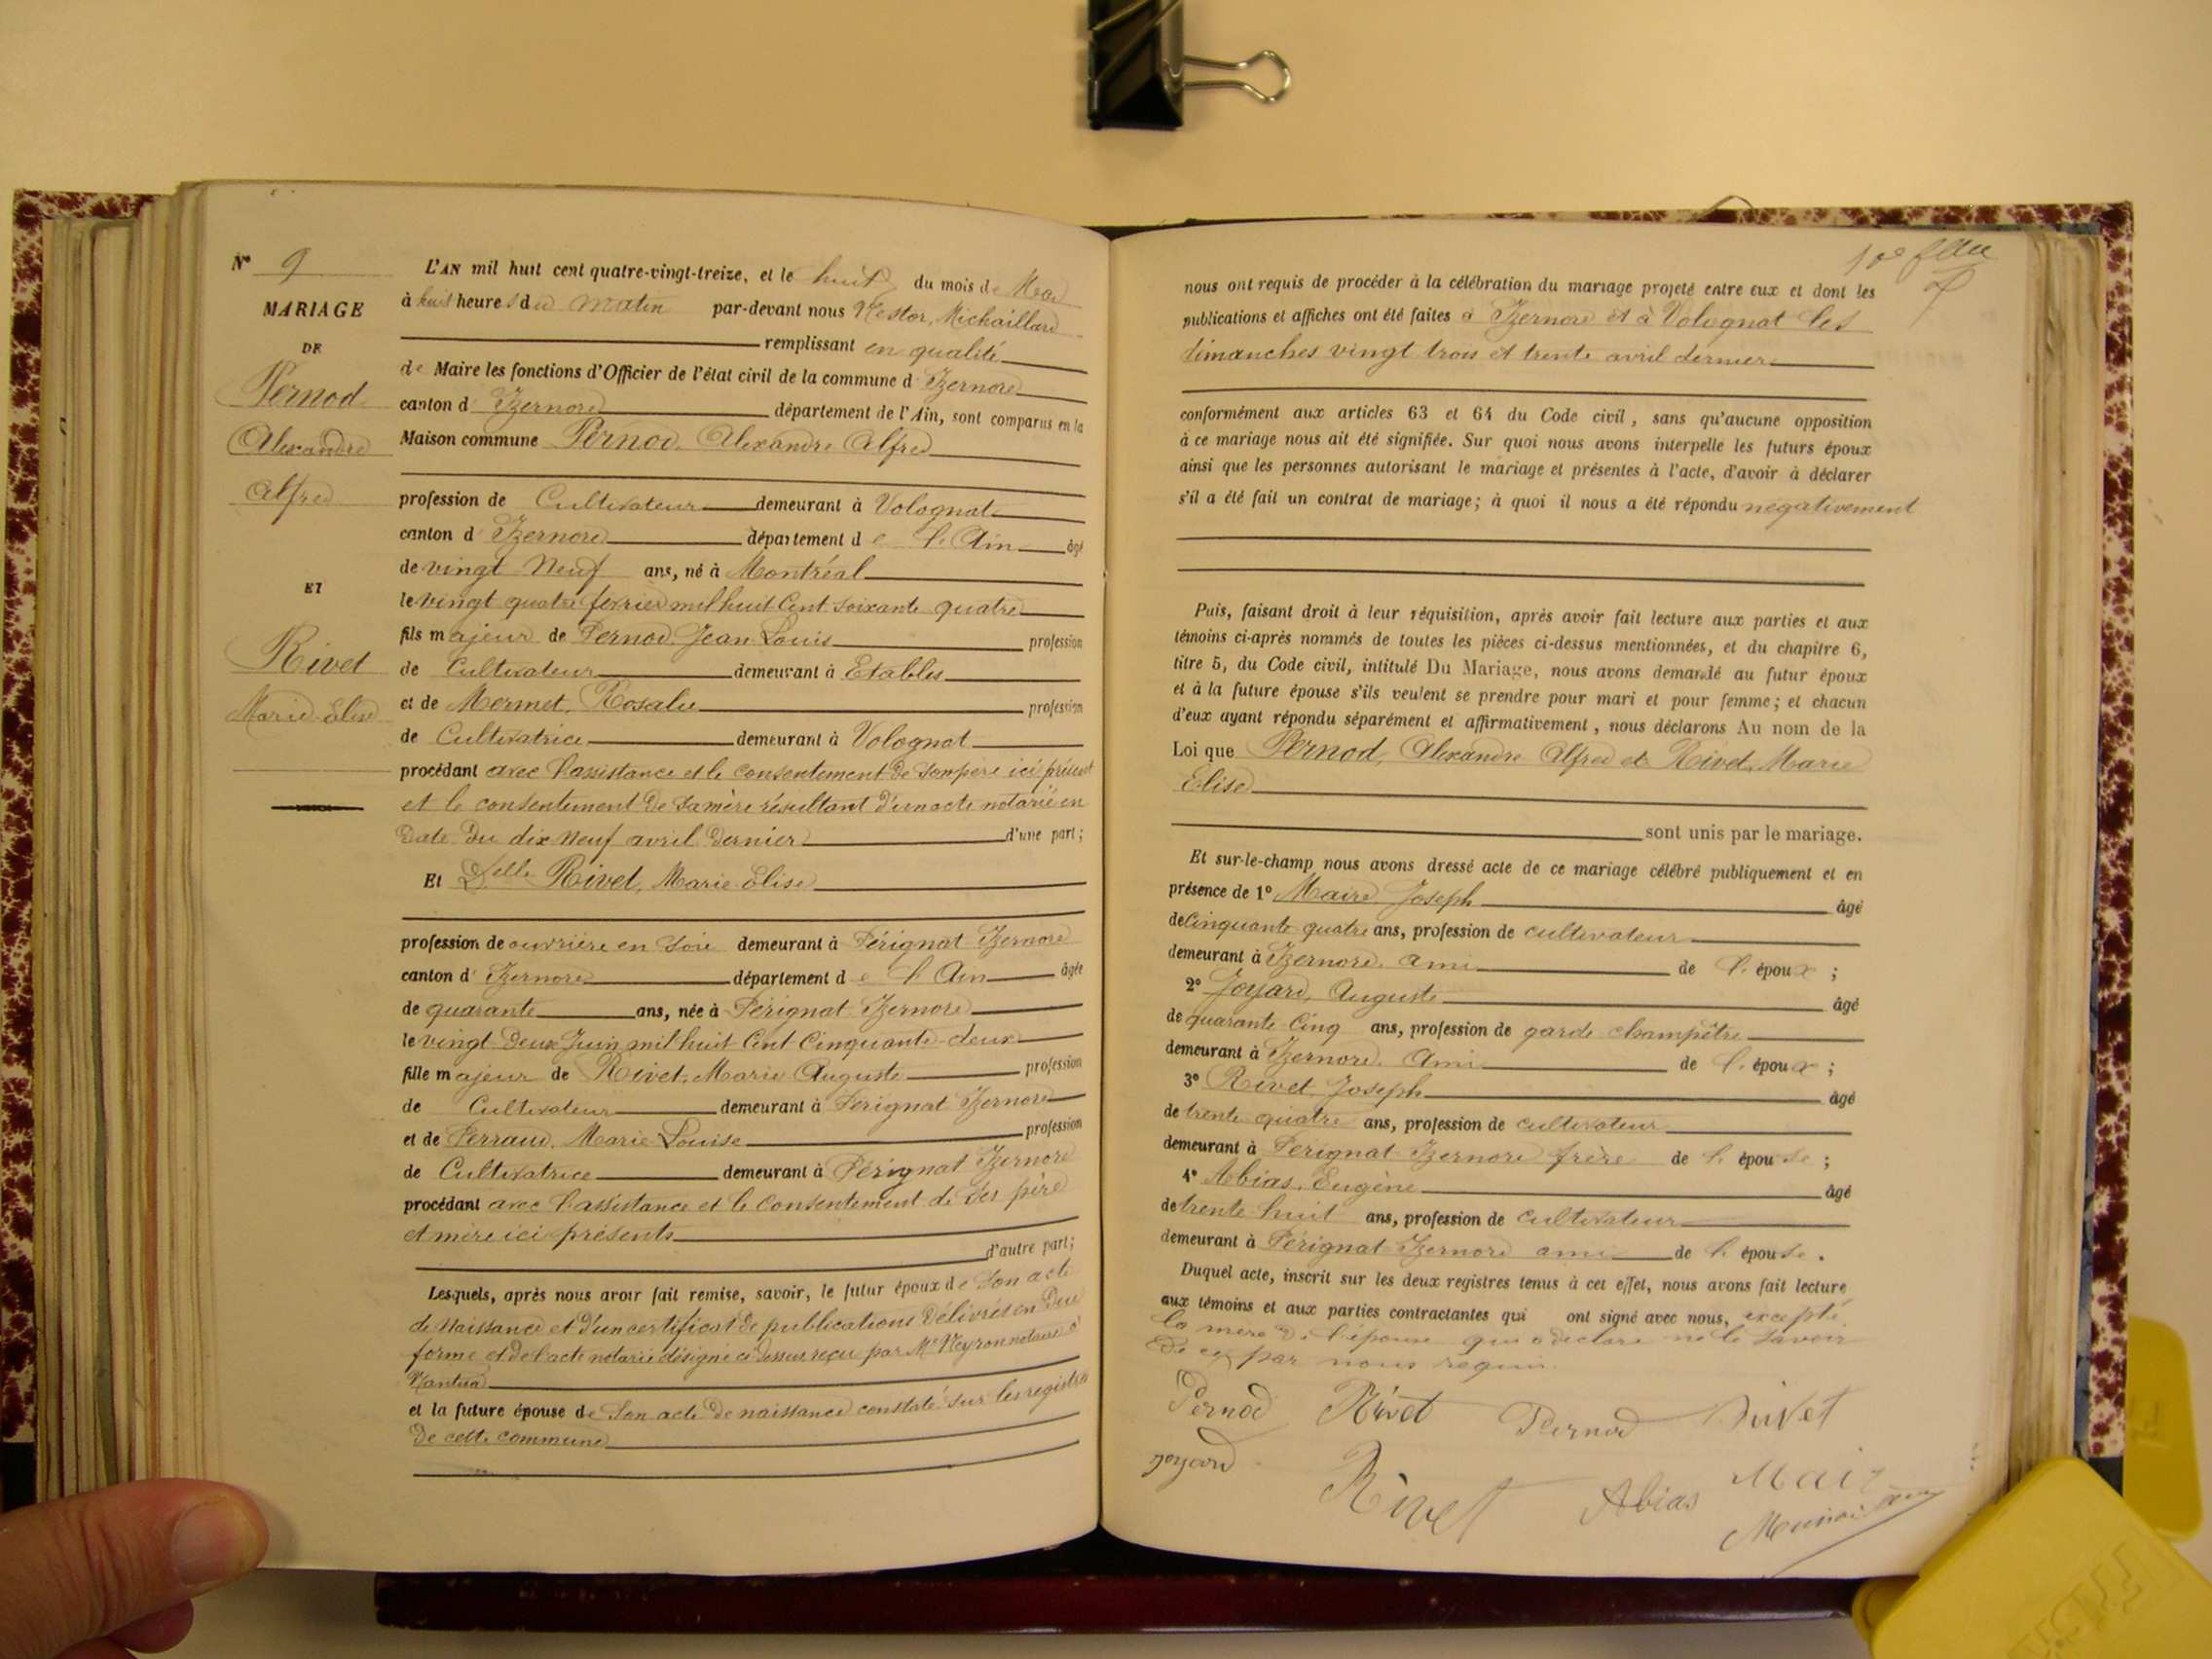 N° 9
MARIAGE
DE
Pernod
Alexandre
Alfred
ET
Rivet
Marie Elise
L'AN mil huit cent quatre-vingt-treize, et le huit du mois de Mai
à huit heures du matin par-devant nous Nestor, Michaillard
remplissant en qualité
de Maire les fonctions d'Officier de l'état civil de la commune d'Izernore
canton d'Izernore département de l'Ain, sont comparus en la
Maison commune Pernod, Alexandre Alfred
profession de Cultivateur demeurant à Volognat
canton d'Izernore département de l'Ain âgé
de vingt Neuf ans, né à Montréal
le vingt quatre fevrier mil huit Cent soixante quatre
fils majeur de Pernod, Jean Louis profession
de Cultivateur demeurant à Etables
et de Mermet, Rosalie profession
de Cultivatrice demeurant à Volognat
procédant avec l'assistance et le consentement de son père ici présent
et le consentement de sa mère résultant d'un acte notarié en
Date du dix Neuf avril dernier d'une part;
Et Delle Rivet, Marie Elise
profession de ouvrière en soie demeurant à Pérignat Izernore
canton d'Izernore département de l'Ain âgée
de quarante ans, née à Pérignat Izernore
le vingt Deux Juin mil huit Cent Cinquante-deux
fille majeur de Rivet, Marie Auguste profession
de Cultivateur demeurant à Pérignat Izernore
et de Perraud, Marie Louise profession
de Cultivatrice demeurant à Pérignat Izernore
procédant avec l'assistance et le Consentement de ses père
et mère ici présents
d'autre part;
Lesquels, après nous avoir fait remise, savoir, le futur époux de Son acte
de Naissance et d'un certificat de publications délivrés en due
forme et de l'acte notarié désigné ci dessus reçu par Me Neyron notaire à
Nantua
et la future épouse de Son acte de naissance constaté sur les registres
De cette commune
nous ont requis de procéder à la célébration du mariage projeté entre eux et dont les
publications et affiches ont été faites à Izernore et à Volognat les
dimanches vingt trois et trente avril dernier
conformément aux articles 63 et 64 du Code civil, sans qu'aucune opposition
à ce mariage nous ait été signifiée. Sur quoi nous avons interpelle les futurs époux
ainsi que les personnes autorisant le mariage et présentes à l'acte, d'avoir à déclarer
s'il a été fait un contrat de mariage; à quoi il nous a été répondu négativement
Puis, faisant droit à leur réquisition, après avoir fait lecture aux parties et aux
témoins ci-après nommés de toutes les pièces ci-dessus mentionnées, et du chapitre 6,
titre 5, du Code civil, intitulé Du Mariage, nous avons demandé au futur époux
et à la future épouse s'ils veulent se prendre pour mari et pour femme; et chacun
d'eux ayant répondu séparément et affirmativement, nous déclarons Au nom de la
Loi que Pernod, Alexandre Alfred et Rivet, Marie
Elise
sont unis par le mariage.
Et sur-le-champ nous avons dressé acte de ce mariage célébré publiquement et en
présence de 1° Maire, Joseph âgé
de Cinquante quatre ans, profession de cultivateur
demeurant à Izernore, ami de l'époux;
2° Joyard, Auguste âgé
de quarante Cinq ans, profession de garde champêtre
demeurant à Izernore, Ami de l'époux;
3° Rivet Joseph âgé
de trente quatre ans, profession de cultivateur
demeurant à Perignat Izernore frère de l'épouse;
4° Abias, Eugène âgé
de trente huit ans, profession de Cultivateur
demeurant à Pérignat Izernore ami de l'épouse.
Duquel acte, inscrit sur les deux registres tenus à cet effet, nous avons fait lecture
aux témoins et aux parties contractantes qui ont signé avec nous, excepté
la mère de l'épouse qui a déclaré ne le savoir
de ce par nous requis.
Pernod Rivet Pernod Rivet
Joyard Rivet Abias Maire